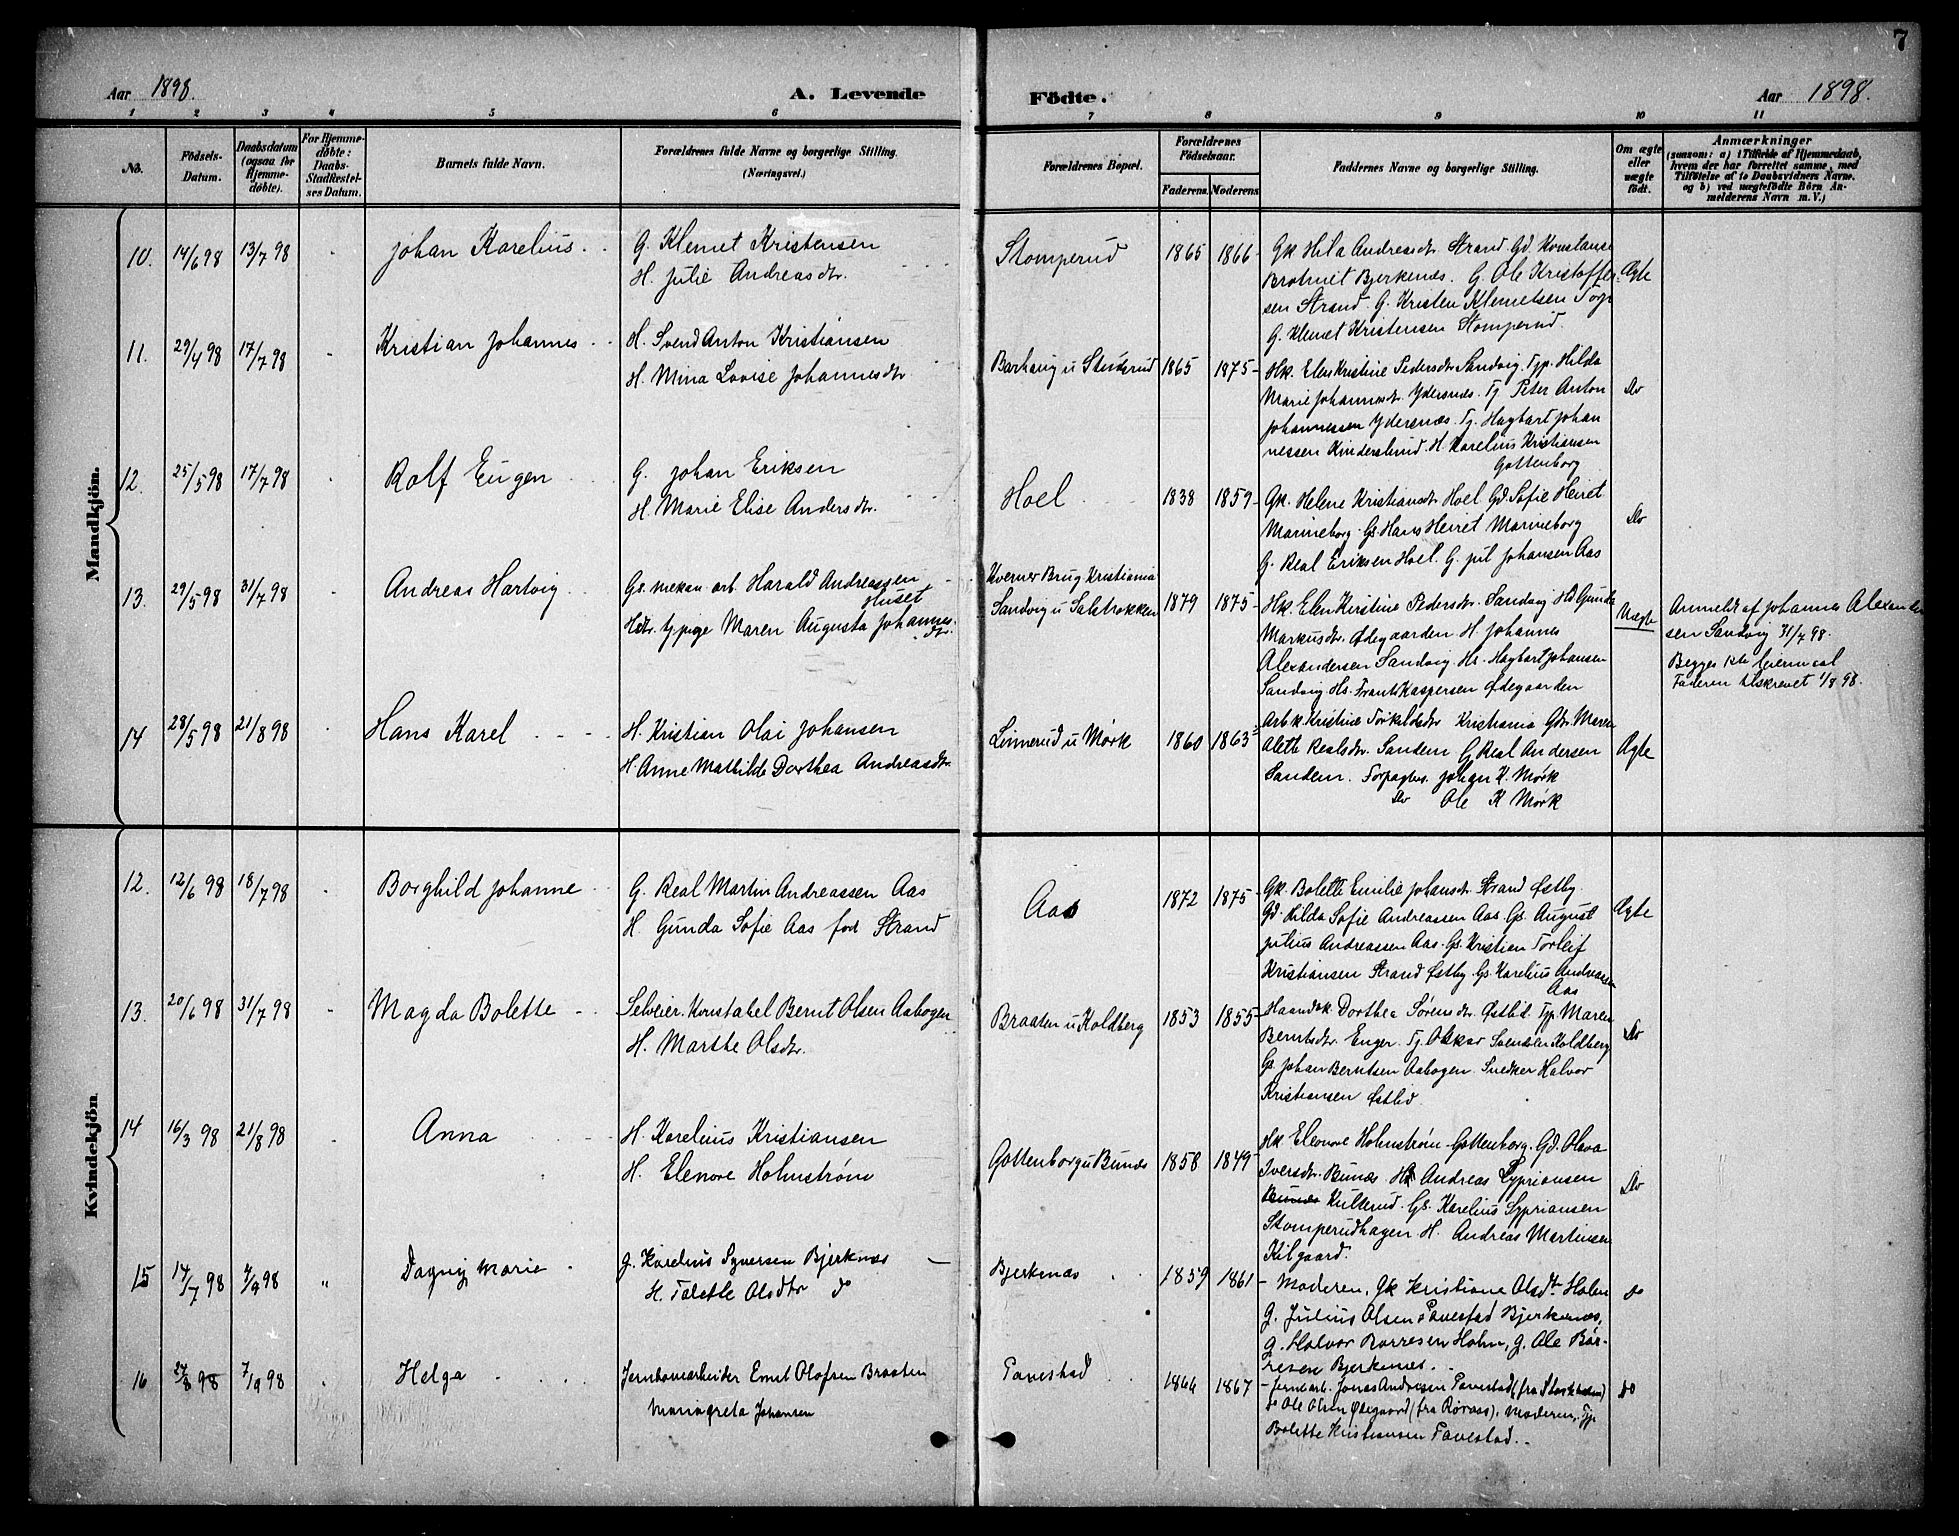 7
Aar 1898.
A. Levende
Födte.
Aar 1898.
1 2 3 4 5 6 7 8 9 10 11
No.
Födsels-Datum.
Daabsdatum (ogsaa for Hjemme-döbte).
For Hjemme-döbte: Daabs-Stadfæstel-ses Datum.
Barnets fulde Navn.
Forældrenes fulde Navne og borgerlige Stilling. (Næringsvei.)
Forældrenes Bopæl.
Forældrenes Födselsaar.
Faderens. Moderens.
Faddernes Navne og borgerlige Stilling.
Om ægte eller uægte födt.
Anmærkninger
(saasom: a) i Tilfælde af Hjemmedaab,
hvem der har forrettet samme, med
Tilföielse af to Daabsvidners Navne.
og b) ved uægtefödte Börn An-
melderens Navn m. V.)
Mandkjön.
10. 14/6 98 13/7 98 Johan Karelius
G. Klemet Kristensen
H. Julie Andreasdtr.
Stomperud 1865 1866
Gk. Hila Andreasdtr Strand. Gd. Konstanse
Brotnit Bjerkenæs. G. Ole Kristoffer-
sen Strand. G. Kristen Klemetsen Torp
G. Klemet Kristensen Stomperud.
Ægte
11. 29/4 98 17/7 98 Kristian Johannes
H. Svend Anton Kristiansen
H. Mina Lovise Johannesdtr
Barhaug u Studerud 1865 1875
Hk. Elen Kristine Pedersdtr Sandvig. Typ. Hilda
Marie Johannesdtr. Ydersnæs. Tj Peter Anton
Johannessen Ydersnæs. Tj. Hagbart Johan
nessen Kinderslund. H. Karelius Kristiansen
Gottenborg
Do
12. 25/5 98 17/7 98 Rolf Eugen
G. Johan Eriksen
H. Marie Elise Andersdtr.
Hoel 1838 1859
Gk. Helene Kristiansdtr Hoel Gd. Sofie Heiret
Marineborg. Gs. Hans Heiret Marineborg
G. Real Eriksen Hoel. G. Jul Johansen Aas
Do
13. 29/5 98 31/7 98 Andreas Hartvig
Gs. mekan arb. Harald Andreassen
Huset
Hdtr. tj.pige Maren Augusta Johannes-
dtr.
Kverner Brug Kristiania
Sandvig u Salstrokken 1879 1875
Hk. Elen Kirstine Pedersdtr. Sandvig Hd Gunda
Markusdtr. Ødegaarden H. Johannes
Alexandersen Sandvig. Hs. Hagbart Johansen
Sandvig Hs. Frants Kaspersen Ødegaarden
Uægte
Anmeldt af Johannes Alexander
sen Sandvig 31/7 98.
Begges 1ste leiermaal
Faderen tilskrevet 1/8 98.
14 28/5 98 21/8 98 Hans Karel
H. Kristian Olai Johansen
H. Anne Mathilde Dorthea Andreasdtr.
Linnerud u Mørk 1860 1863
Arb k. Kristine Torkildsdtr Kristiania Gdtr. Maren
Alette Realsdtr. Sandem G. Real Andersen
Sandem. Forpagter Johan K. Mørk
Do Ole K Mørk
Ægte
Kvindekjön
12. 12/6 98 18/7 98 Borghild Johanne
G. Real Martin Andreassen Aas
H. Gunda Sofie Aas fød Strand
Aas 1872 1875
Gk. Bolette Emilie Johansdtr Strand Østby.
Gd. Hilda Sofie Andreassen Aas. Gs. August
Julius Andreassen Aas. Gs. Kristian Torleif
Kristiansen Strand Østby. Gs. Karelius Andreassen
Aas
Ægte
13. 20/6 98 31/7 98 Magda Bolette
Selveier. Konstabel Bernt Olsen Aabogen
H. Marthe Olsdtr.
Braaten u Koldberg 1853 1855
Haandvk. Dorthea Sørensdtr. Østlid. Typ. Maren
Berntsdtr. Enger. Tj. Oskar Svendsen Koldberg
Gs. Johan Berntsen Aabogen. Snedker Halvor
Kristiansen Østlid.
Do
14 16/3 98 21/8 98 Anna
H. Karelius Kristiansen
H. Elenore Holmstrøm
Gottenborg u Bunæs 1858 1849
Hk. Eleonore Holmstrøm Gottenborg. Gd. Olava
Iversdtr. Bunæs. H. Andreas Sypriansen
Bunæs Kulterud. Gs. Karelius Sypriansen
Stomperudhagen H. Andreas Martinsen
Kilgaard.
Do
15 14/7 98 4/9 98 Dagny Marie
G. Karelius Syversen Bjerknæs
H. Talette Olsdtr do
Bjerkenæs 1859 1861
Moderen, Gk Kristiane Olsdtr Holm
G. Julius Olsen Pavestad Bjerkenæs,
G. Halvor Borresen Holm, G. Ole Bør-
resen Bjerkenæs.
do
16 24/8 98 7/9 98 Helga
Jernbanearbeider Ernst Olofsen Braaten
Mariagreta Johansen
Pavestad 1866 1867
Jernb.arb. Jonas Andresen Pavestad (fra Stockholm)
do Ole Olsen Ødegaard (fra Røraas), Moderen, Typ
Bolette Kristiansen Pavestad.
do